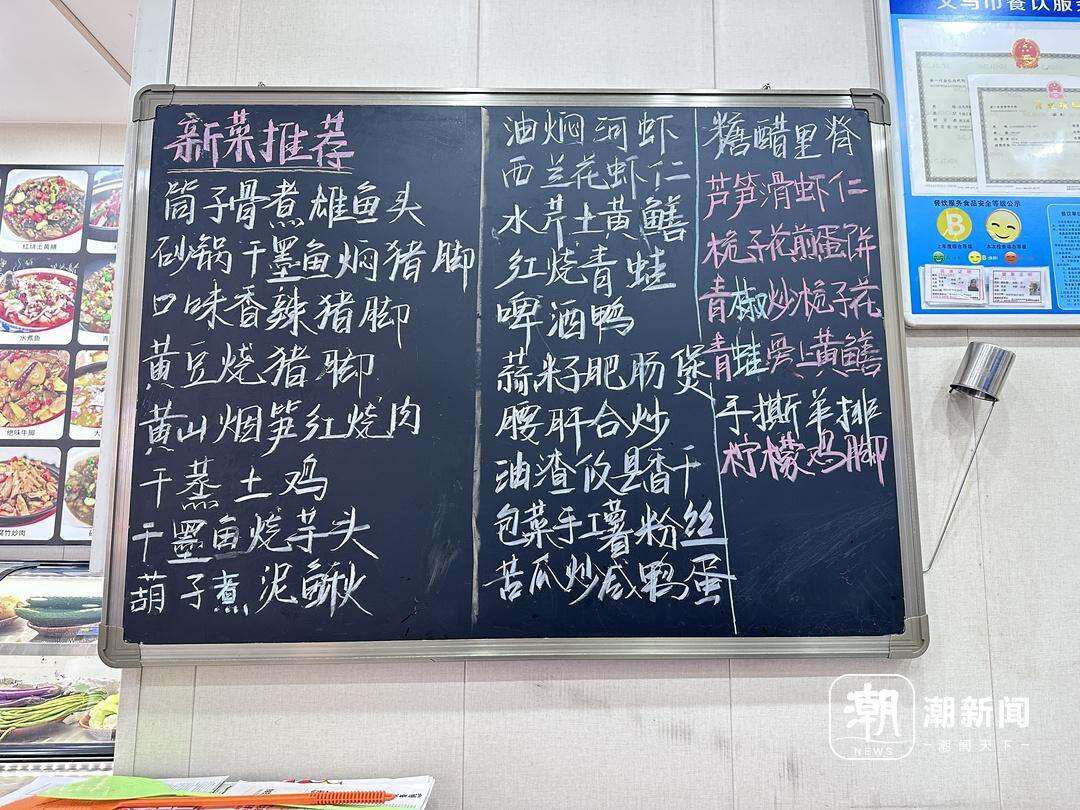 新菜推荐
筒子骨煮雄鱼头
砂锅干墨鱼焖猪脚
口味香辣猪脚
黄豆烧猪脚
黄山烟笋红烧肉
干蒸土鸡
干墨鱼烧芋头
葫子煮泥鳅
油焖河虾
西兰花虾仁
水芹土黄鳝
红烧青蛙
啤酒鸭
蒜籽肥肠煲
腰肝合炒
油渣攸县香干
包菜手工薯粉丝
苦瓜炒咸鸭蛋
糖醋里脊
芦笋滑虾仁
栀子花煎蛋饼
青椒炒栀子花
青蛙爱上黄鳝
手撕羊排
柠檬鸡脚
义乌市餐饮服务
餐饮服务食品安全等级公示
红烧土黄鳝
水煮鱼
绝味牛脚
腐竹炒肉
潮
NEWS
潮新闻
潮闻天下